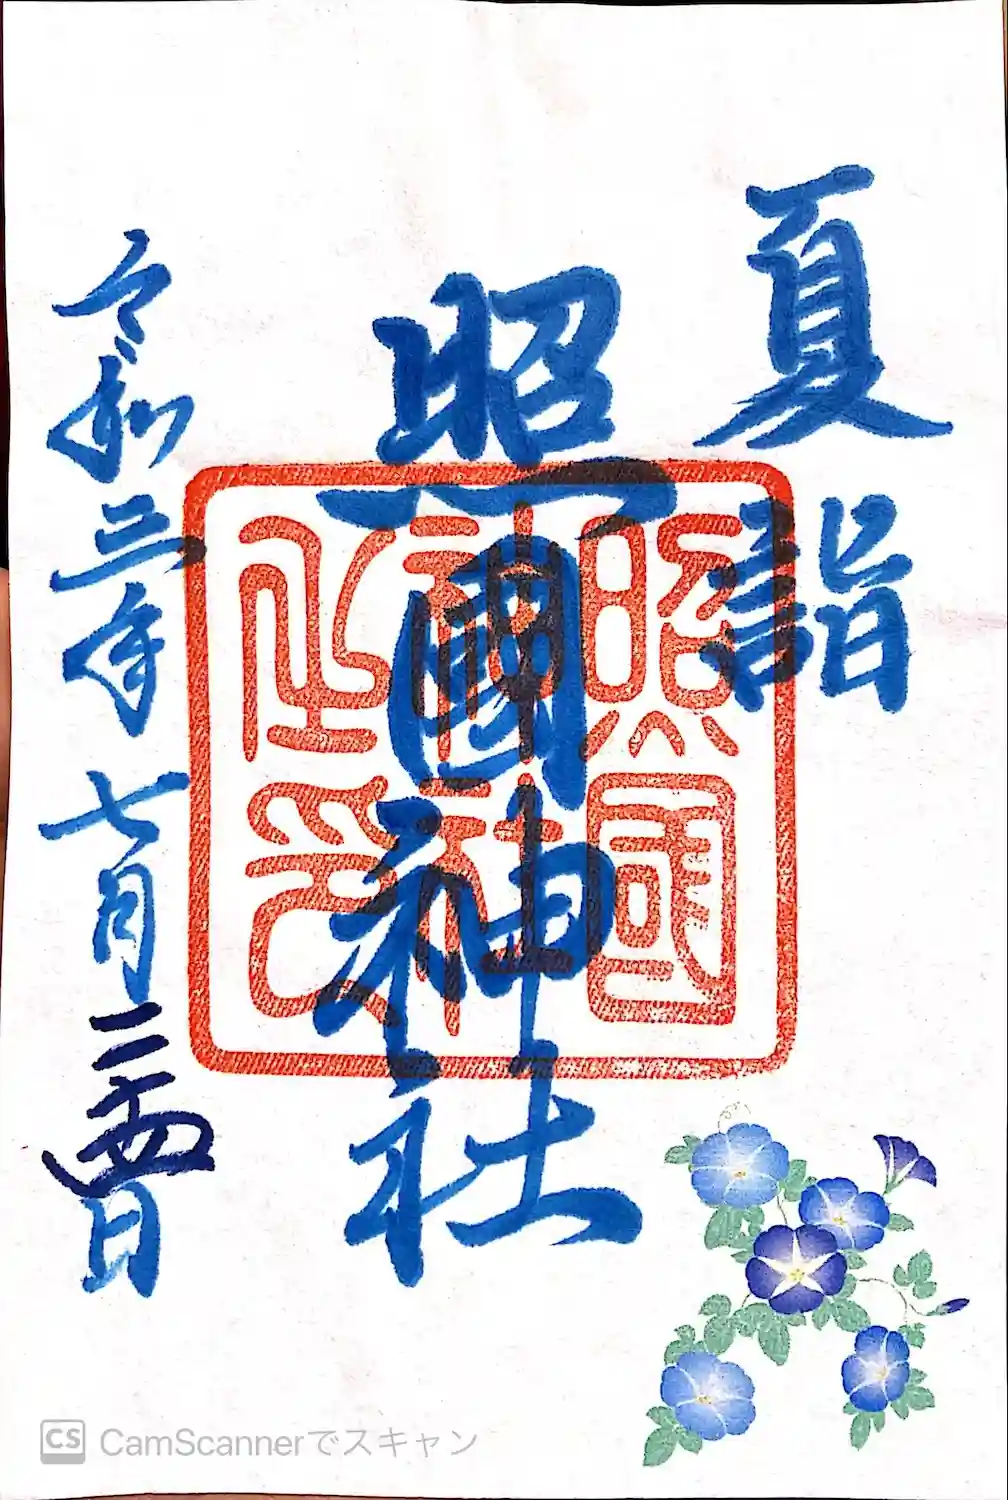 夏詣
照國神社
照國神社之印
令和三年七月二十四日
CS CamScannerでスキャン